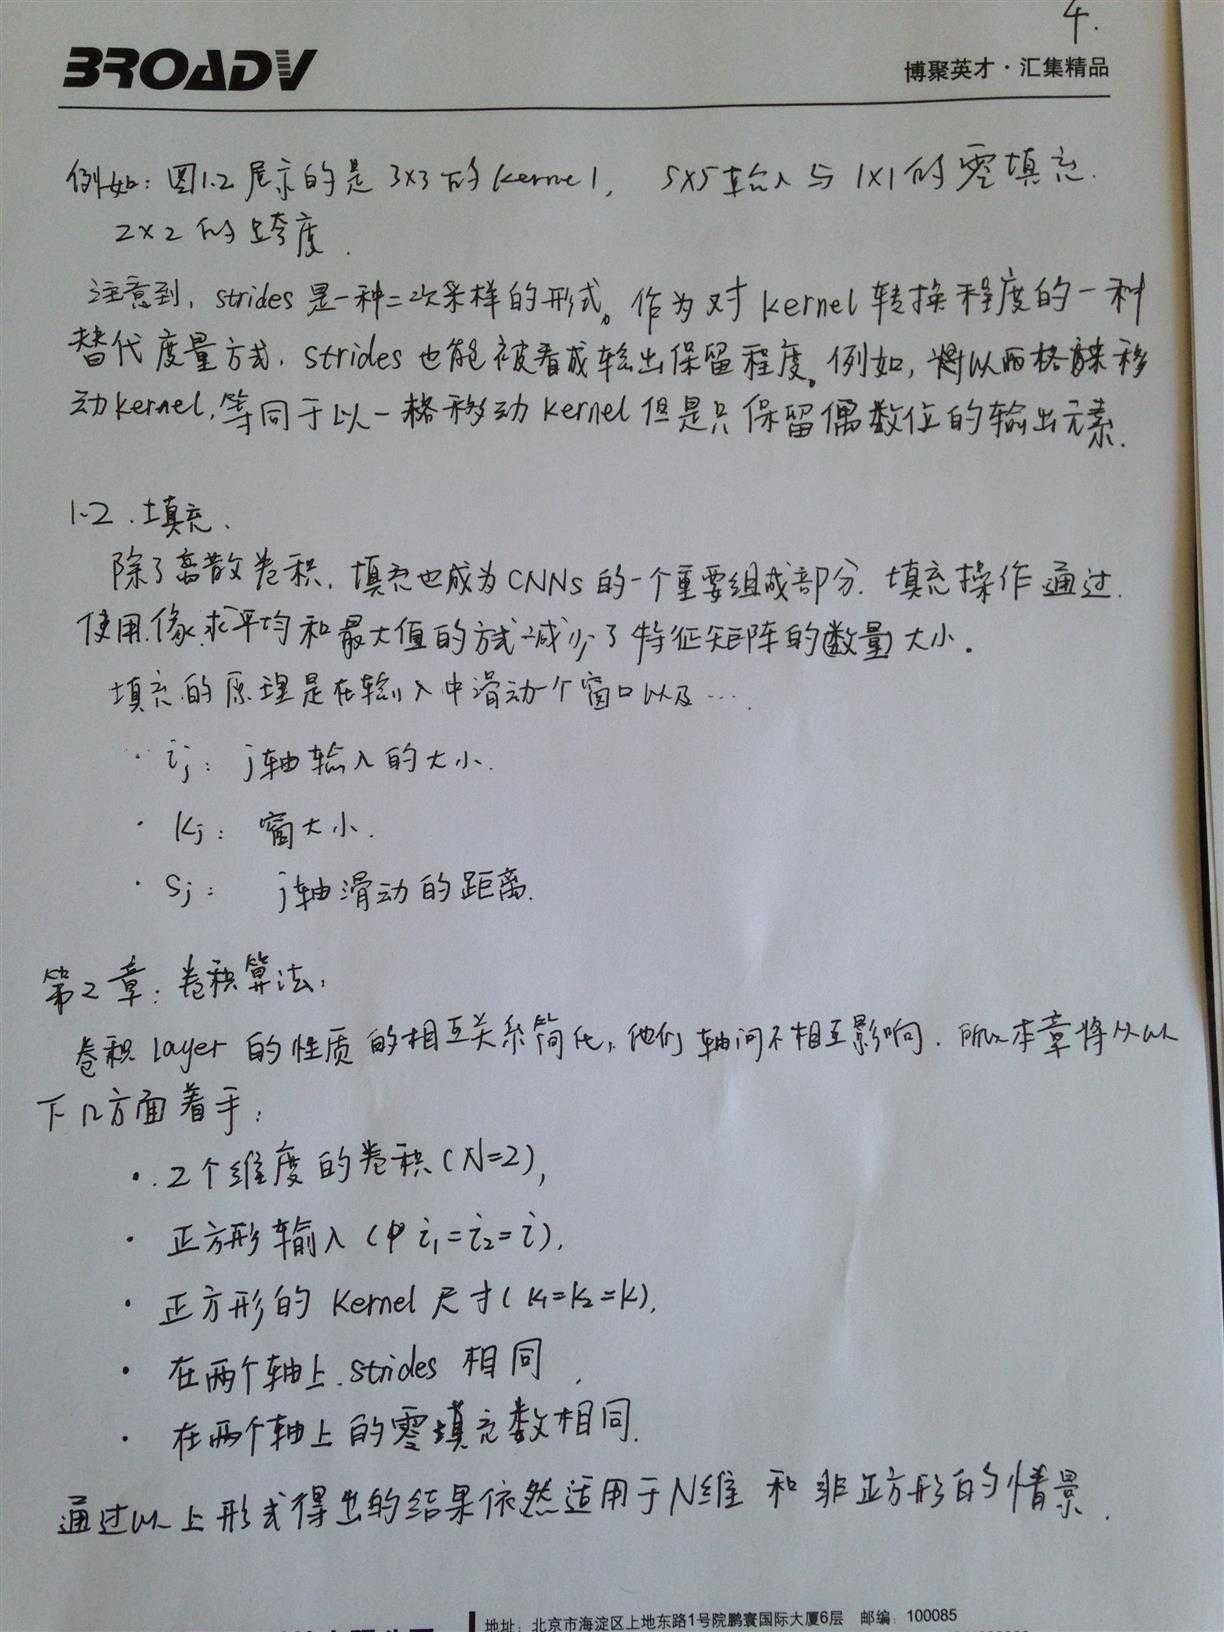 4.
BROADV
博聚英才·汇集精品
例如:图1.2展示的是3×3的kernel, 5×5输入与1×1的零填充.
2×2的跨度.
注意到, strides是一种二次采样的形式。作为对kernel转换程度的一种
替代度量方式, strides也能被看成输出保留程度。例如,将以两格来移
动kernel,等同于以一格移动kernel但是只保留偶数位的输出元素.
1.2.填充.
除了离散卷积,填充也成为CNNs的一个重要组成部分.填充操作通过.
使用像求平均和最大值的方式减少了特征矩阵的数量大小.
填充的原理是在输入中滑动个窗口以及…
· ij: j轴输入的大小.
· kj: 窗大小.
· sj: j轴滑动的距离.
第2章:卷积算法:
卷积layer的性质的相互关系简化,他们轴间不相互影响.所以本章将从以
下几方面着手:
· 2个维度的卷积(N=2),
· 正方形输入(中i1=i2=i),
· 正方形的Kernel尺寸(k1=k2=k),
· 在两个轴上strides相同,
· 在两个轴上的零填充数相同.
通过以上形式得出的结果依然适用于N维和非正方形的情景.
地址:北京市海淀区上地东路1号院鹏寰国际大厦6层 邮编:100085